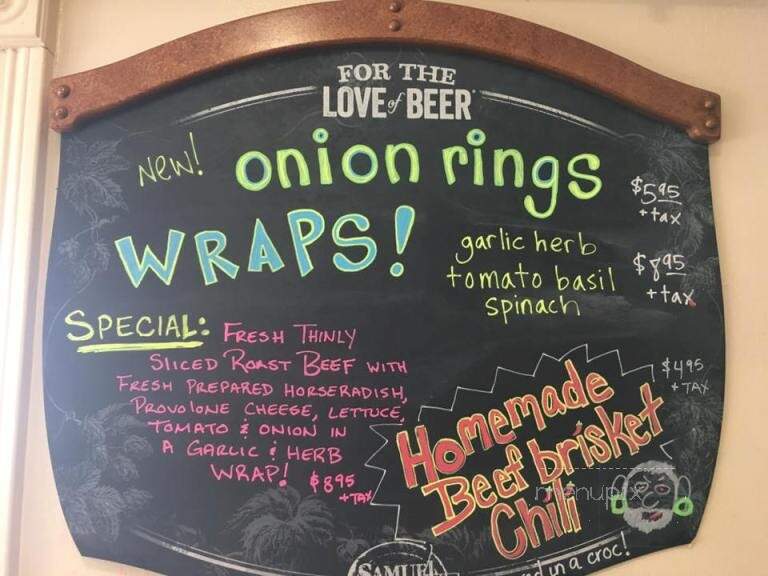 FOR THE
LOVE of BEER
NEW! onion rings
$5.95
+ tax
WRAPS!
garlic herb
tomato basil
spinach
$8.95
+ tax
SPECIAL: FRESH THINLY
SLICED ROAST BEEF WITH
FRESH PREPARED HORSERADISH,
PROVOLONE CHEESE, LETTUCE,
TOMATO & ONION IN
A GARLIC & HERB
WRAP! $8.95
+TAX
$4.95
+ TAX
Homemade
Beef brisket
Chili
menupix
in a croc!
SAMUEL